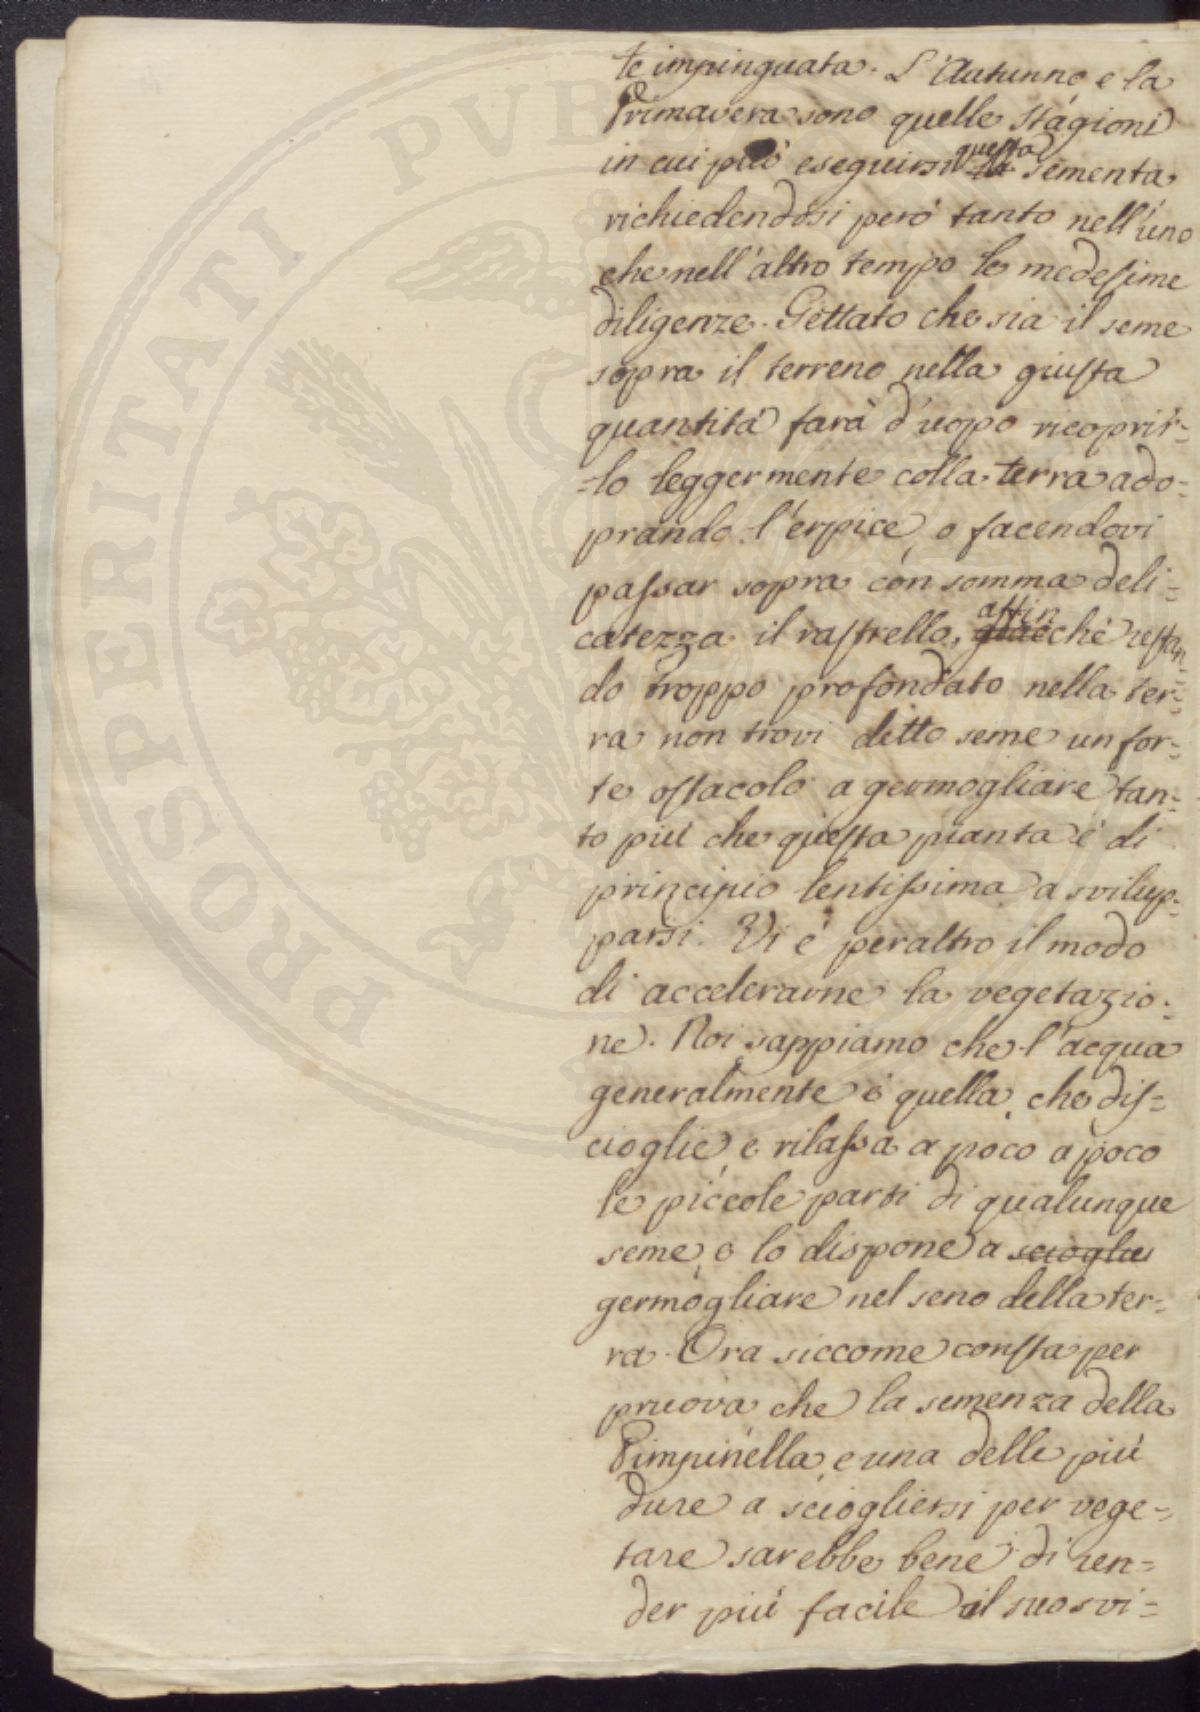 te impinguata. L'Autunno e la
Primavera sono quelle stagioni
in cui può eseguirsi questa sementa,
richiedendosi però tanto nell'uno
che nell'altro tempo le medesime
diligenze. Gettato che sia il seme
sopra il terreno nella giusta
quantità farà d'uopo ricoprir=
=lo leggermente colla terra ado=
prando l'erpice, o facendovi
passar sopra con somma deli=
catezza il rastrello, affinchè restan=
do troppo profondato nella ter=
ra non trovi ditto seme un for=
te ostacolo a germogliare tan=
to più che questa pianta è di
principio lentissima a svilup=
parsi. Vi è peraltro il modo
di accelerarne la vegetazio=
ne. Noi sappiamo che l'acqua
generalmente è quella, che dis=
cioglie e rilassa a poco a poco
le piccole parti di qualunque
seme, e lo dispone a scioglie
germogliare nel seno della ter=
ra. Ora siccome consta per
pruova che la semenza della
Pimpinella, e una delle più
dure a sciogliersi per vege=
tare sarebbe bene di ren=
der più facile il suo svi=
PROSPERITATI PUB